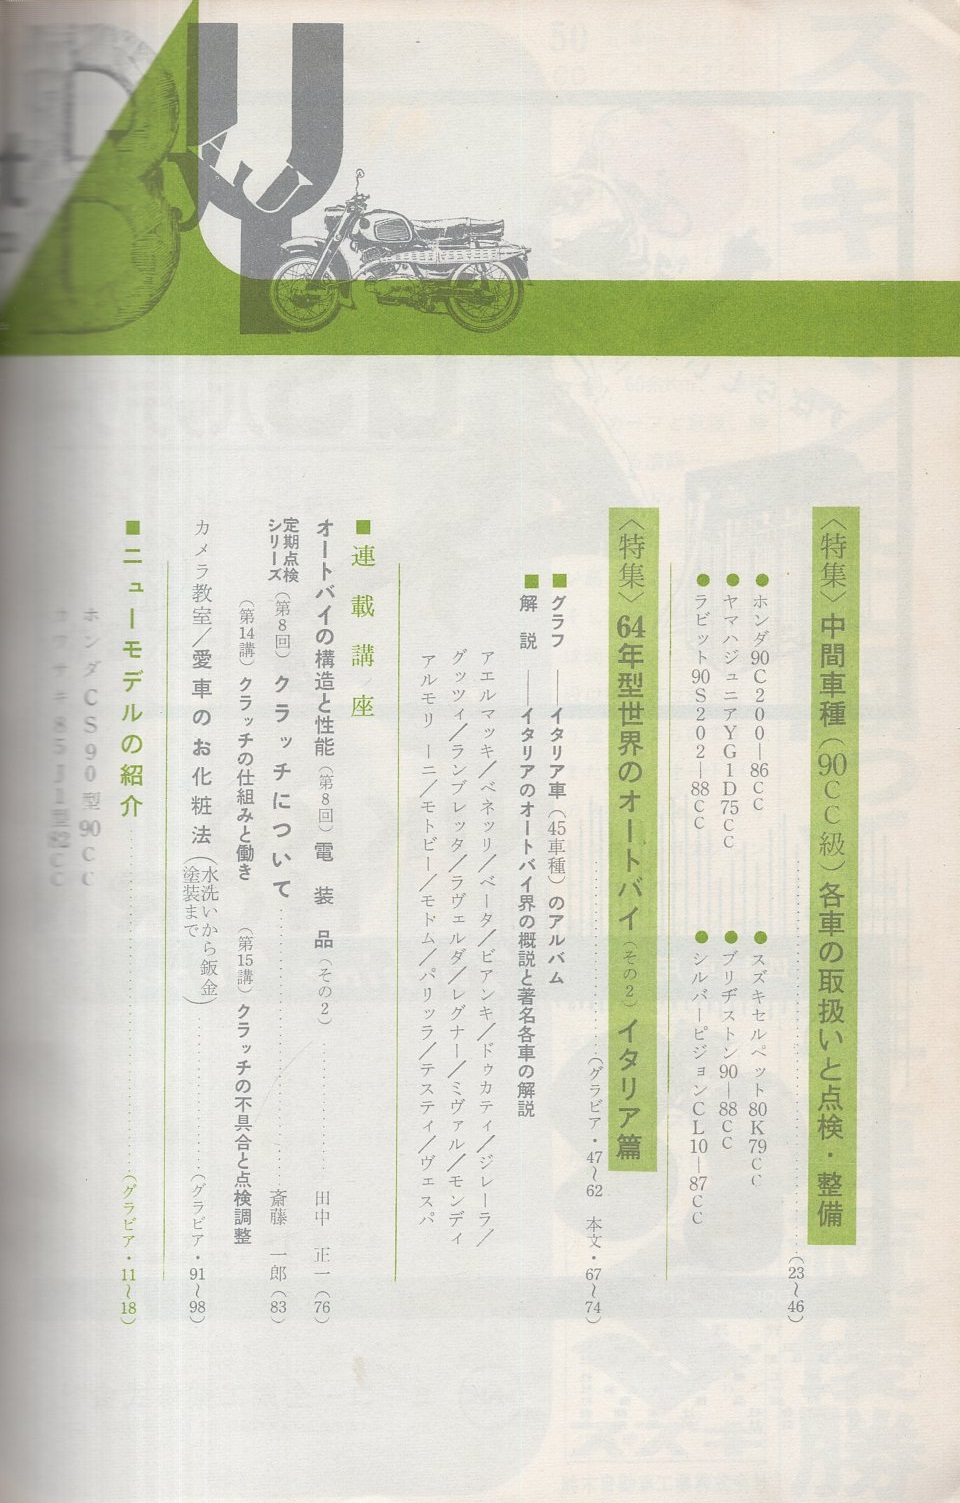 〈特集〉中間車種（90CC級）各車の取扱いと点検・整備
（23〜46）
●ホンダ90C200―86CC
●スズキセルペット80K79CC
●ヤマハジュニアYG1D75CC
●ブリヂストン90―88CC
●ラビット90S202―88CC
●シルバーピジョンCL10―87CC
〈特集〉64年型世界のオートバイ（その2）イタリア篇
（グラビア・47〜62　本文・67〜74）
■グラフ――イタリア車（45車種）のアルバム
■解説――イタリアのオートバイ界の概説と著名各車の解説
アエルマッキ／ベネッリ／ベータ／ビアンキ／ドゥカティ／ジレーラ／
グッツィ／ランブレッタ／ラヴェルダ／レグナー／ミヴァル／モンディ
アルモリーニ／モトビー／モドム／パリッラ／テスティ／ヴェスパ
■連載講座
オートバイの構造と性能（第8回）電装品（その2）　田中正一（76）
定期点検シリーズ（第8回）クラッチについて　斎藤一郎（83）
（第14講）クラッチの仕組みと働き　（第15講）クラッチの不具合と点検調整
カメラ教室／愛車のお化粧法（水洗いから鈑金塗装まで）（グラビア・91〜98）
■ニューモデルの紹介（グラビア・11〜18）
ホンダCS90型90CC